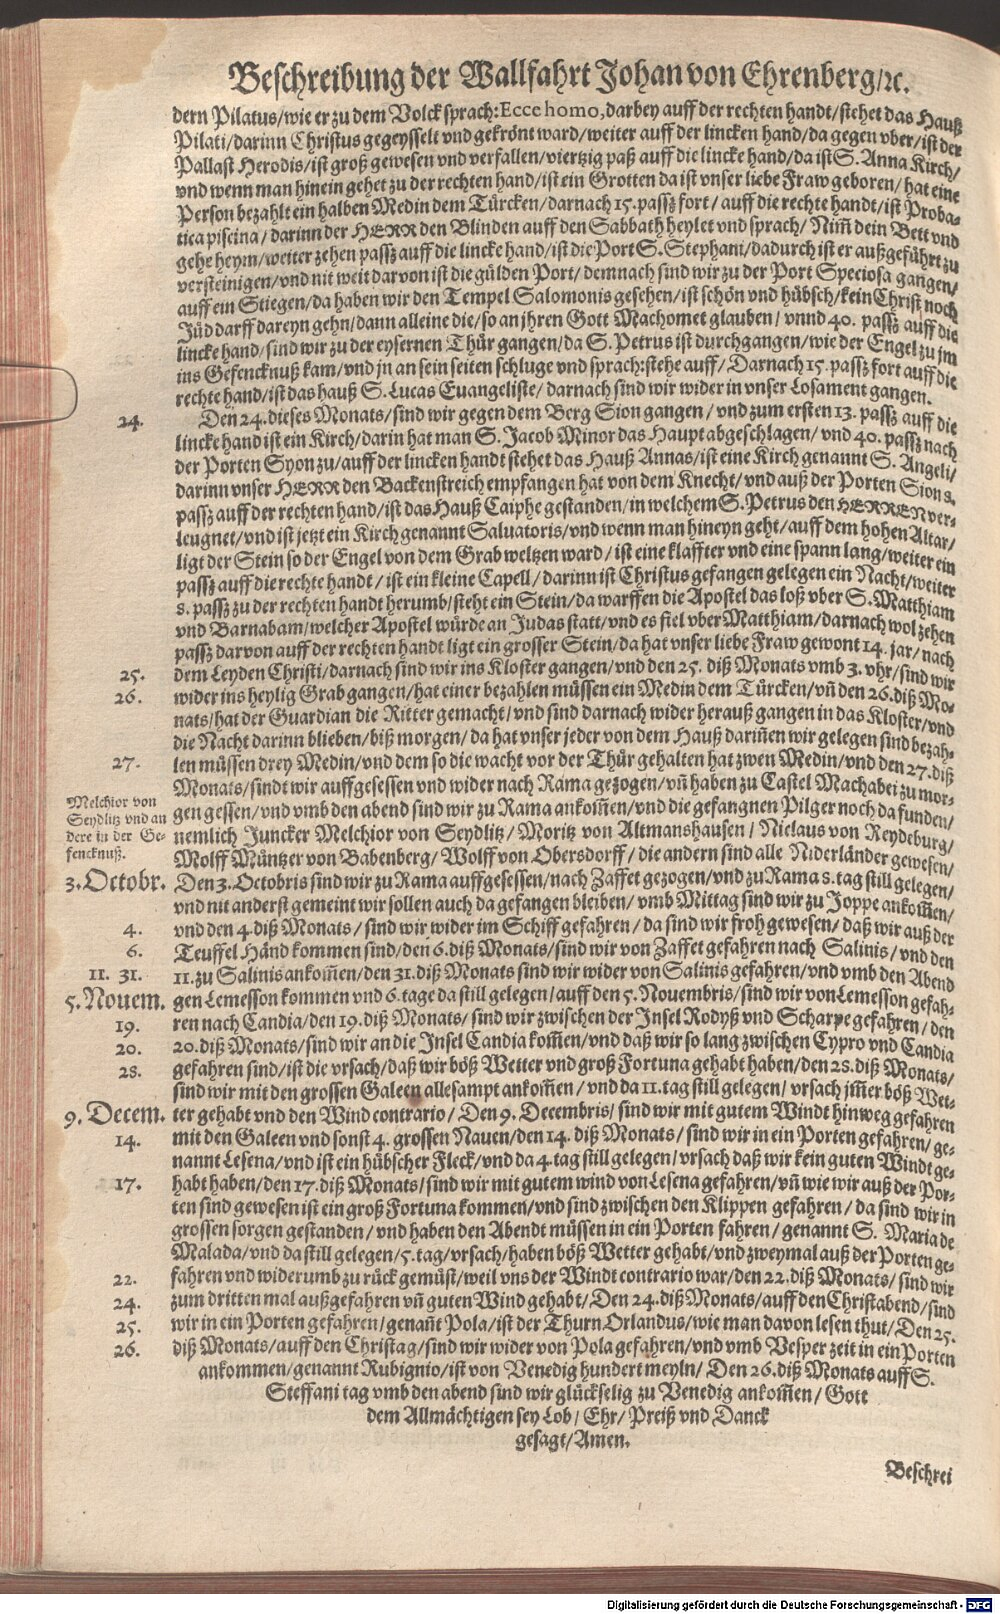 Beschreibung der Wallfahrt Johan von Ehrenberg/ꝛc.
dern Pilatus/wie er zu dem Volck sprach: Ecce homo, darbey auff der rechten handt/stehet das Hauß
Pilati/darinn Christus gegeysselt vnd gekrönt ward/weiter auff der lincken hand/da gegen vber/ist der
Pallast Herodis/ist groß gewesen vnd verfallen/viertzig paß auff die lincke hand/da ist S. Anna Kirch/
vnd wenn man hinein gehet zu der rechten hand/ist ein Grotten da ist vnser liebe Fraw geboren/hat eine
Person bezahlt ein halben Medin dem Türcken/darnach 15. passz fort/auff die rechte handt/ist Proba-
tica piscina/darinn der HERR den Blinden auff den Sabbath heylet vnd sprach/Nim̃ dein Bett vnd
gehe heym/weiter zehen passz auff die lincke hand/ist die Port S. Stephani/dadurch ist er außgeführt zu
versteinigen/vnd nit weit darvon ist die gülden Port/demnach sind wir zu der Port Speciosa gangen/
auff ein Stiegen/da haben wir den Tempel Salomonis gesehen/ist schön vnd hübsch/kein Christ noch
Jüd darff dareyn gehn/dann alleine die/so an jhren Gott Machomet glauben/vnnd 40. passz auff die
lincke hand/sind wir zu der eysernen Thür gangen/da S. Petrus ist durchgangen/wie der Engel zu jm
ins Gefencknuß kam/vnd jn an sein seiten schluge vnd sprach:stehe auff/Darnach 15. passz fort auff die
rechte hand/ist das hauß S. Lucas Euangeliste/darnach sind wir wider in vnser Losament gangen.
24. Den 24. dieses Monats/sind wir gegen dem Berg Sion gangen/vnd zum ersten 13. passz auff die
lincke hand ist ein Kirch/darin hat man S. Jacob Minor das Haupt abgeschlagen/vnd 40. passz nach
der Porten Syon zu/auff der lincken handt stehet das Hauß Annas/ist eine Kirch genannt S. Angeli/
darinn vnser HERR den Backenstreich empfangen hat von dem Knecht/vnd auß der Porten Sion 8.
passz auff der rechten hand/ist das Hauß Caiphe gestanden/in welchem S. Petrus den HERREN ver-
leugnet/vnd ist jetzt ein Kirch genannt Saluatoris/vnd wenn man hineyn geht/auff dem hohen Altar/
ligt der Stein so der Engel von dem Grab weltzen ward/ist eine klaffter vnd eine spann lang/weiter ein
passz auff die rechte handt/ist ein kleine Capell/darinn ist Christus gefangen gelegen ein Nacht/weiter
8. passz zu der rechten handt herumb/steht ein Stein/da warffen die Apostel das loß vber S. Matthiam
vnd Barnabam/welcher Apostel würde an Judas statt/vnd es fiel vber Matthiam/darnach wol zehen
passz darvon auff der rechten handt ligt ein grosser Stein/da hat vnser liebe Fraw gewont 14. jar/nach
25. dem Leyden Christi/darnach sind wir ins Kloster gangen/vnd den 25. diß Monats vmb 3. vhr/sind wir
26. wider ins heylig Grab gangen/hat einer bezahlen müssen ein Medin dem Türcken/vñ den 26. diß Mo-
nats/hat der Guardian die Ritter gemacht/vnd sind darnach wider herauß gangen in das Kloster/vnd
die Nacht darinn blieben/biß morgen/da hat vnser jeder von dem Hauß darin̄en wir gelegen sind bezah-
27. len müssen drey Medin/vnd dem so die wacht vor der Thür gehalten hat zwen Medin/vnd den 27. diß
Monats/sindt wir auffgesessen vnd wider nach Rama gezogen/vñ haben zu Castel Machabei zu mor-
Melchior von
Seydlitz vnd an
dere in der Ge-
fencknuß.
gen gessen/vnd vmb den abend sind wir zu Rama ankom̄en/vnd die gefangnen Pilger noch da funden/
nemlich Juncker Melchior von Seydlitz/Moritz von Altmanshausen/Niclaus von Reydeburg/
Wolff Müntzer von Babenberg/Wolff von Obersdorff/die andern sind alle Niderländer gewesen/
3. Octobr. Den 3. Octobris sind wir zu Rama auffgesessen/nach Zaffet gezogen/vnd zu Rama 8. tag still gelegen/
vnd nit anderst gemeint wir sollen auch da gefangen bleiben/vmb Mittag sind wir zu Joppe ankom̄en/
4. vnd den 4. diß Monats/sind wir wider im Schiff gefahren/da sind wir froh gewesen/daß wir auß der
6. Teuffel Händ kommen sind/den 6. diß Monats/sind wir von Zaffet gefahren nach Salinis/vnd den
11. 31. 11. zu Salinis ankom̄en/den 31. diß Monats sind wir wider von Salinis gefahren/vnd vmb den Abend
5. Nouem. gen Lemesson kommen vnd 6. tage da still gelegen/auff den 5. Nouembris/sind wir von Lemesson gefah-
19. ren nach Candia/den 19. diß Monats/sind wir zwischen der Insel Rodyß vnd Scharpe gefahren/den
20. 20. diß Monats/sind wir an die Insel Candia kom̄en/vnd daß wir so lang zwischen Cypro vnd Candia
28. gefahren sind/ist die vrsach/daß wir böß Wetter vnd groß Fortuna gehabt haben/den 28. diß Monats/
sind wir mit den grossen Galeen allesampt ankom̄en/vnd da 11. tag still gelegen/vrsach jm̄er böß Wet-
9. Decem. ter gehabt vnd den Wind contrario/Den 9. Decembris/sind wir mit gutem Windt hinweg gefahren
14. mit den Galeen vnd sonst 4. grossen Nauen/den 14. diß Monats/sind wir in ein Porten gefahren/ge-
nannt Lesena/vnd ist ein hübscher Fleck/vnd da 4. tag still gelegen/vrsach daß wir kein guten Windt ge-
17. habt haben/den 17. diß Monats/sind wir mit gutem wind von Lesena gefahren/vñ wie wir auß der Por-
ten sind gewesen ist ein groß Fortuna kommen/vnd sind zwischen den Klippen gefahren/da sind wir in
grossen sorgen gestanden/vnd haben den Abendt müssen in ein Porten fahren/genannt S. Maria de
Malada/vnd da still gelegen/5. tag/vrsach/haben böß Wetter gehabt/vnd zweymal auß der Porten ge-
22. fahren vnd widerumb zu rück gemüst/weil vns der Windt contrario war/den 22. diß Monats/sind wir
24. zum dritten mal außgefahren vñ guten Wind gehabt/Den 24. diß Monats/auff den Christabend/sind
25. wir in ein Porten gefahren/genañt Pola/ist der Thurn Orlandus/wie man davon lesen thut/Den 25.
26. diß Monats/auff den Christag/sind wir wider von Pola gefahren/vnd vmb Vesper zeit in ein Porten
ankommen/genannt Rubignio/ist von Venedig hundert meyln/Den 26. diß Monats auff S.
Steffani tag vmb den abend sind wir glückselig zu Venedig ankom̄en/Gott
dem Allmächtigen sey Lob/Ehr/Preiß vnd Danck
gesagt/Amen.
Beschrei
Digitalisierung gefördert durch die Deutsche Forschungsgemeinschaft - DFG